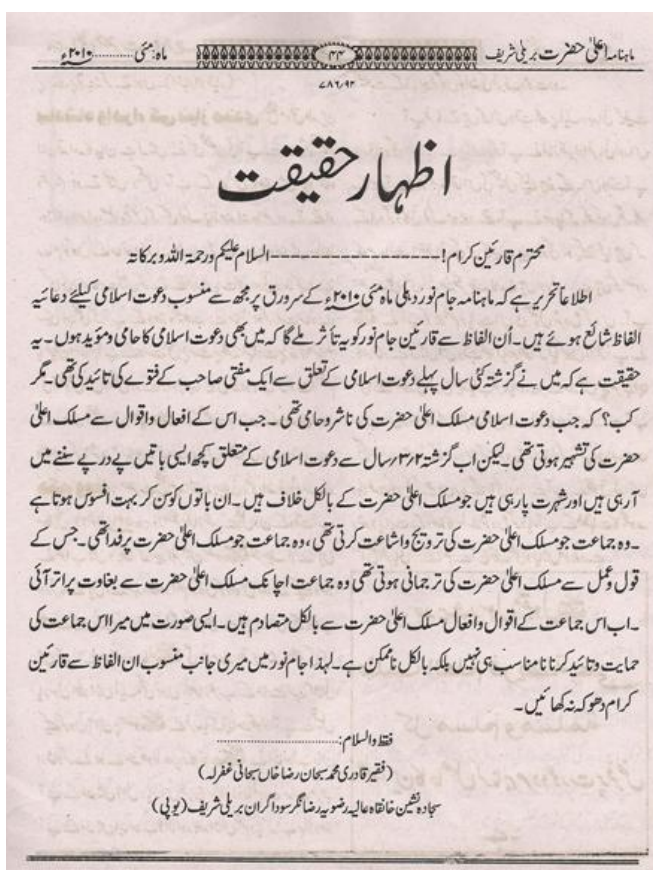 ماہنامہ اعلیٰ حضرت بریلی شریف ۴۴ ماہ: مئی ............ ۲۰۱۰ء
۷۸۶/۹۲
اظہار حقیقت
محترم قارئین کرام! ------------------------ السلام علیکم ورحمۃ اللہ وبرکاتہ
اطلاعاً تحریر ہے کہ ماہنامہ جام نور دہلی ماہ مئی ۲۰۱۰ء کے سرورق پر مجھ سے منسوب دعوت اسلامی کیلئے دعائیہ
الفاظ شائع ہوئے ہیں۔ اُن الفاظ سے قارئین جام نور کو یہ تأثر ملے گا کہ میں بھی دعوت اسلامی کا حامی ومؤید ہوں۔ یہ
حقیقت ہے کہ میں نے گزشتہ کئی سال پہلے دعوت اسلامی کے تعلق سے ایک مفتی صاحب کے فتوے کی تائید کی تھی۔ مگر
کب؟ کہ جب دعوت اسلامی مسلک اعلیٰ حضرت کی ناشر وحامی تھی۔ جب اس کے افعال واقوال سے مسلک اعلیٰ
حضرت کی تشہیر ہوتی تھی۔ لیکن اب گزشتہ ۲/۳ سال سے دعوت اسلامی کے متعلق کچھ ایسی باتیں پے در پے سننے میں
آرہی ہیں اور شہرت پارہی ہیں جو مسلک اعلیٰ حضرت کے بالکل خلاف ہیں۔ ان باتوں کو سن کر بہت افسوس ہوتا ہے
۔ وہ جماعت جو مسلک اعلیٰ حضرت کی ترویج واشاعت کرتی تھی، وہ جماعت جو مسلک اعلیٰ حضرت پر فدا تھی۔ جس کے
قول وعمل سے مسلک اعلیٰ حضرت کی ترجمانی ہوتی تھی وہ جماعت اچانک مسلک اعلیٰ حضرت سے بغاوت پر اتر آئی
۔ اب اس جماعت کے اقوال وافعال مسلک اعلیٰ حضرت سے بالکل متصادم ہیں۔ ایسی صورت میں میرا اس جماعت کی
حمایت وتائید کرنا نا مناسب ہی نہیں بلکہ بالکل ناممکن ہے۔ لہذا جام نور میں میری جانب منسوب ان الفاظ سے قارئین
کرام دھوکہ نہ کھائیں۔
فقط والسلام: ..............................
(فقیر قادری محمد سبحان رضا خاں سبحانی غفرلہ)
سجادہ نشین خانقاہ عالیہ رضویہ رضا نگر سوداگران بریلی شریف (یوپی)